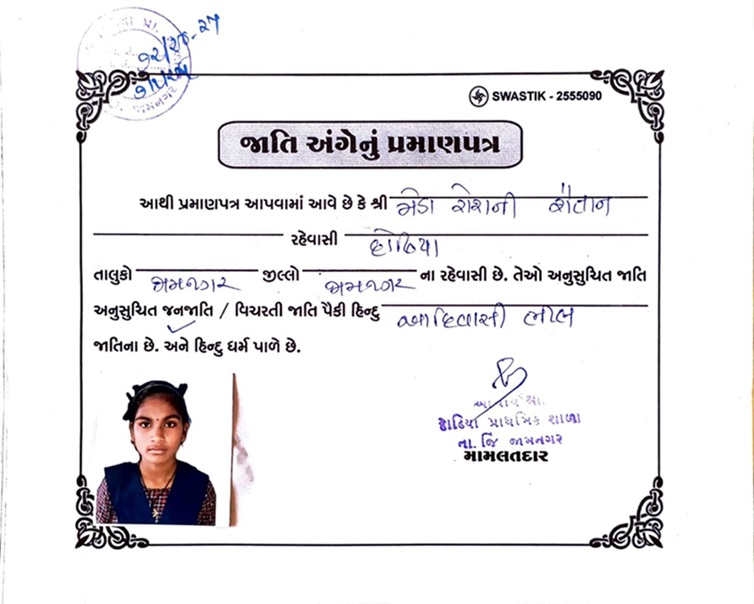 ૧૨/૨૦-૨૧
SWASTIK - 2555090
જાતિ અંગેનું પ્રમાણપત્ર
આથી પ્રમાણપત્ર આપવામાં આવે છે કે શ્રી મેડા રોશની શૈતાન
રહેવાસી ઢોઢિયા
તાલુકો જામનગર જીલ્લો જામનગર ના રહેવાસી છે. તેઓ અનુસુચિત જાતિ
અનુસુચિત જનજાતિ / વિચરતી જાતિ પૈકી હિન્દુ આદિવાસી ભીલ
જાતિના છે. અને હિન્દુ ધર્મ પાળે છે.
પ્રાથમિક શાળા
તા. જિ જામનગર
મામલતદાર